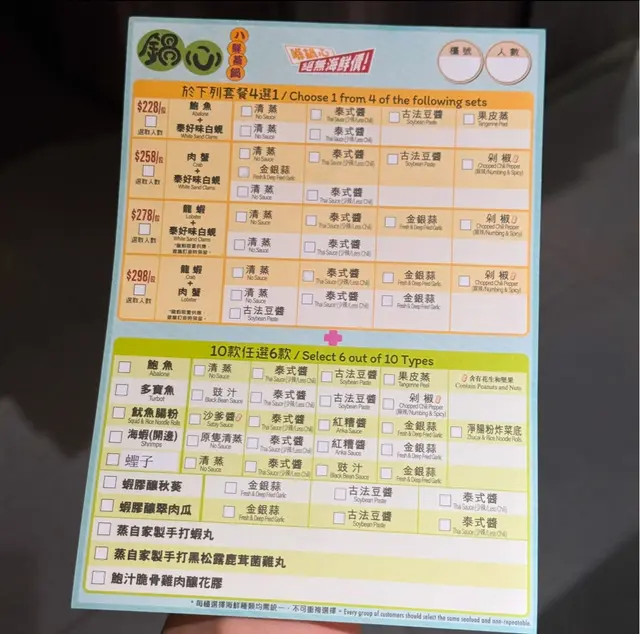 鍋心
八鮮蒸鍋
絕無海鮮價!
檯號
人數
於下列套餐4選1 / Choose 1 from 4 of the following sets
$228/位
選取人數
鮑魚
Abalone
+
泰好味白蜆
White Sand Clams
清蒸
No Sauce
泰式醬
Thai Sauce(少辣/Less Chili)
古法豆醬
Soybean Paste
果皮蒸
Tangerine Peel
清蒸
No Sauce
泰式醬
Thai Sauce(少辣/Less Chili)
$258/位
選取人數
肉蟹
Crab
+
泰好味白蜆
White Sand Clams
清蒸
No Sauce
泰式醬
Thai Sauce(少辣/Less Chili)
古法豆醬
Soybean Paste
剁椒
Chopped Chili Pepper
(麻辣/Numbing & Spicy)
金銀蒜
Fresh & Deep Fried Garlic
清蒸
No Sauce
泰式醬
Thai Sauce(少辣/Less Chili)
$278/位
選取人數
龍蝦
Lobster
+
泰好味白蜆
White Sand Clams
清蒸
No Sauce
泰式醬
Thai Sauce(少辣/Less Chili)
金銀蒜
Fresh & Deep Fried Garlic
剁椒
Chopped Chili Pepper
(麻辣/Numbing & Spicy)
清蒸
No Sauce
泰式醬
Thai Sauce(少辣/Less Chili)
$298/位
選取人數
龍蝦
Crab
+
肉蟹
Lobster
清蒸
No Sauce
泰式醬
Thai Sauce(少辣/Less Chili)
金銀蒜
Fresh & Deep Fried Garlic
剁椒
Chopped Chili Pepper
(麻辣/Numbing & Spicy)
清蒸
No Sauce
泰式醬
Thai Sauce(少辣/Less Chili)
金銀蒜
Fresh & Deep Fried Garlic
古法豆醬
Soybean Paste
+
10款任選6款 / Select 6 out of 10 Types
鮑魚
Abalone
清蒸
No Sauce
泰式醬
Thai Sauce(少辣/Less Chili)
古法豆醬
Soybean Paste
果皮蒸
Tangerine Peel
含有花生和堅果
Contains Peanuts and Nuts
多寶魚
Turbot
豉汁
Black Bean Sauce
泰式醬
Thai Sauce(少辣/Less Chili)
古法豆醬
Soybean Paste
剁椒
Chopped Chili Pepper
(麻辣/Numbing & Spicy)
魷魚腸粉
Squid & Rice Noodle Rolls
沙爹醬
Satay Sauce
泰式醬
Thai Sauce(少辣/Less Chili)
紅糟醬
Anka Sauce
金銀蒜
Fresh & Deep Fried Garlic
淨腸粉炸菜底
海蝦(開邊)
Shrimps
原隻清蒸
No Sauce
泰式醬
Thai Sauce(少辣/Less Chili)
紅糟醬
Anka Sauce
金銀蒜
Fresh & Deep Fried Garlic
蟶子
清蒸
No Sauce
泰式醬
Thai Sauce(少辣/Less Chili)
豉汁
Black Bean Sauce
金銀蒜
Fresh & Deep Fried Garlic
蝦膠釀秋葵
金銀蒜
Fresh & Deep Fried Garlic
古法豆醬
Soybean Paste
泰式醬
Thai Sauce(少辣/Less Chili)
蝦膠釀翠肉瓜
金銀蒜
Fresh & Deep Fried Garlic
古法豆醬
Soybean Paste
泰式醬
Thai Sauce(少辣/Less Chili)
蒸自家製手打蝦丸
蒸自家製手打黑松露鹿茸菌雞丸
鮑汁脆骨雞肉釀花膠
*每檯選擇海鮮種類均需統一，不可重複選擇。Every group of customers should select the same seafood and non-repeatable.